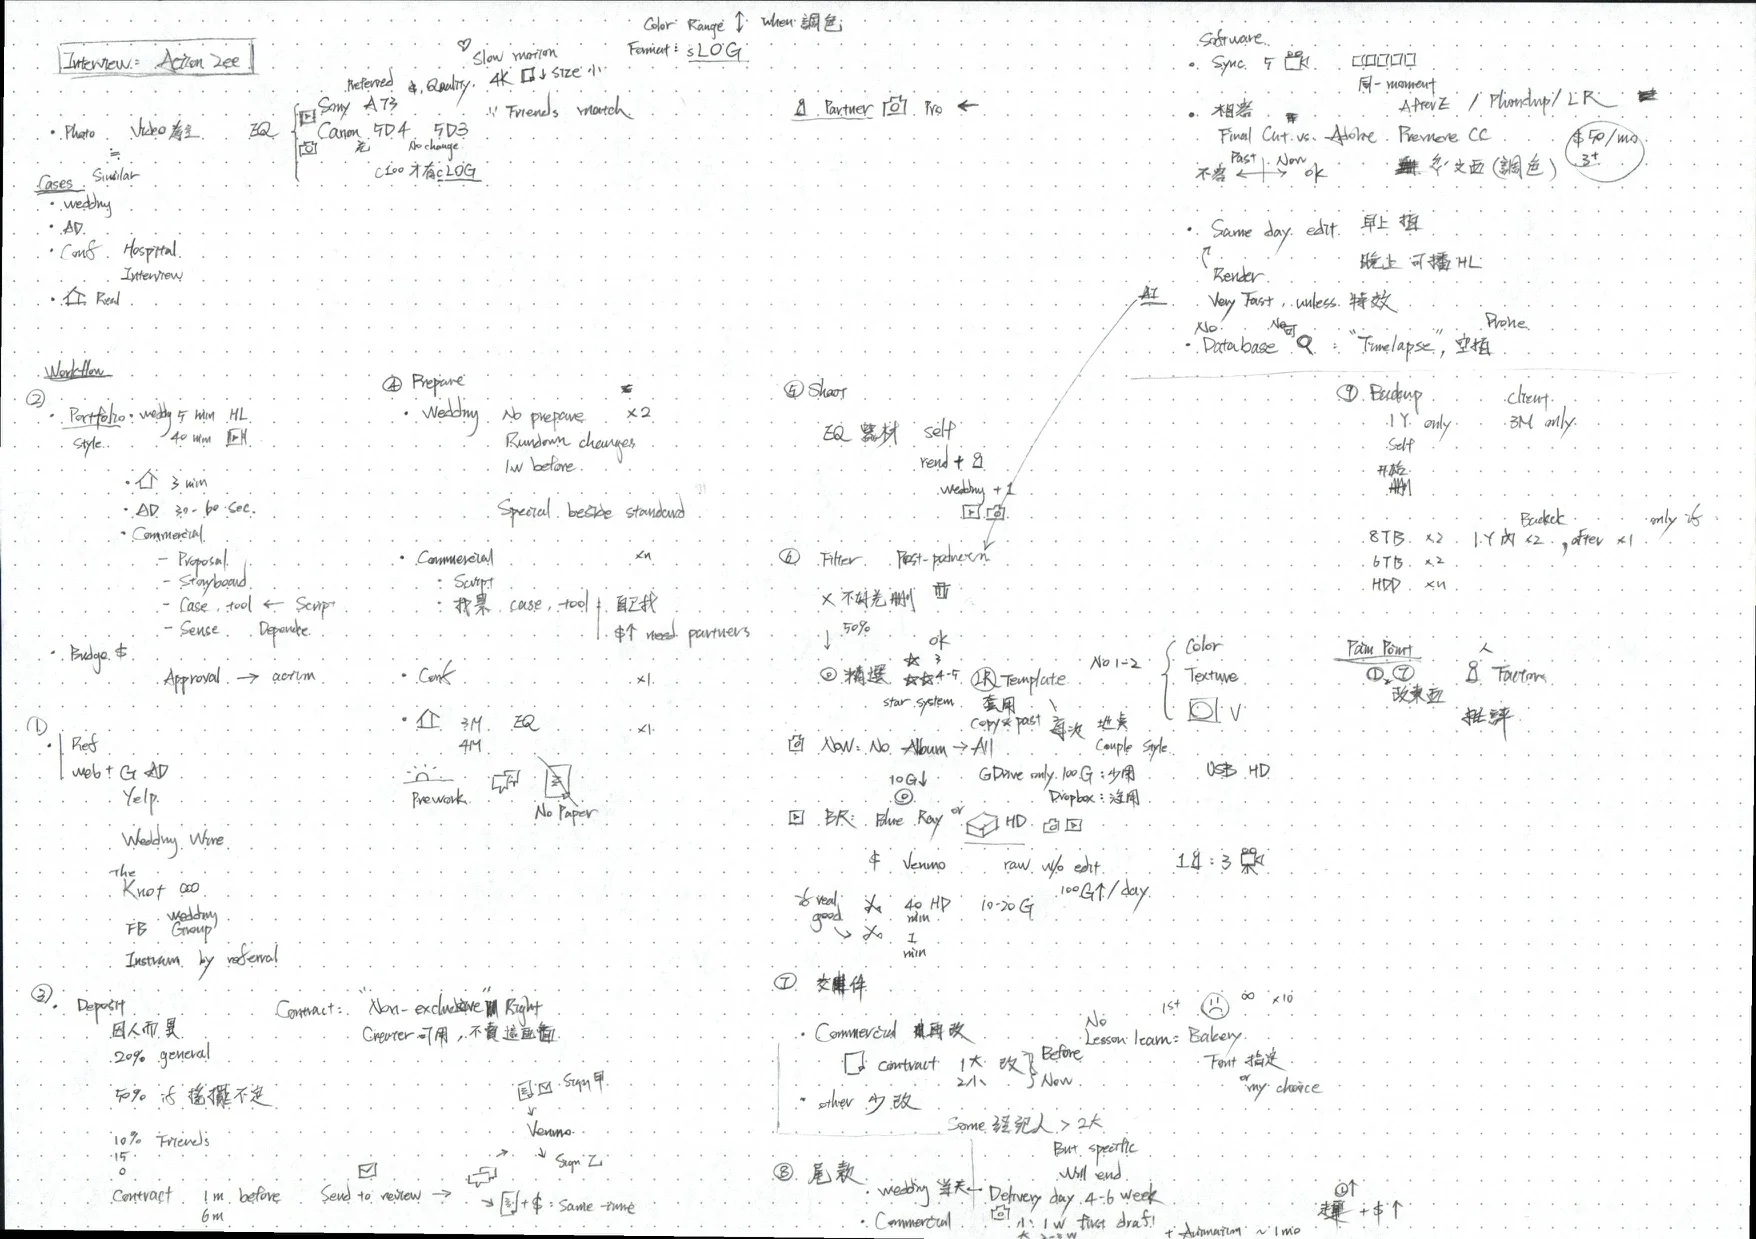 Interview: Action Zee
Color Range ↕ when 調色
Format: sLOG
♡ Slow motion
Preferred &, Quality. 4K ↓ size 小
Sony A73
Friends match
• Photo Video 為主 EQ
Canon 5D4 5D3
No change
C100 才有cLOG
Similar
Cases
• wedding
• AD
• Conf. Hospital
Interview
• Real
Partner Pro ←
Software
• Sync. 5
同一 moment
AfterE / / LR
• 相容
Final Cut vs. Adobe Premiere CC
$50/mo
3+
Past Now
不容 ← → ok
多文面 (調色)
• Same day edit. 早上 拍
晚上 可播 HL
Render
Very Fast, unless 特效
AI
No
No
Drone
• Database : "Timelapse", 空拍
Workflow
②
• Portfolio • wedding 5 min HL
style. 40 min
• 3 min
• AD 30-60 sec.
• Commercial
– Proposal
– Storyboard
– Case, tool ← Script
– Sense Depende.
• Budge $
Approval → action
①
Ref
web + G AD
Yelp
Wedding Wire
The
Knot
wedding
FB Group
Instram by referral
③
• Deposit
因人而異
20% general
50% if 搖擺不定
10% Friends
15
0
Contract 1m before
6m
Send to review →
Contract: "Non-exclusive" Right
Creater 可用, 不賣這畫面
Sign 甲
↓
Venmo
↓ Sign 乙
+ $ : Same time
④ Prepare
• Wedding No prepare x2
Rundown changes
1w before
Special beside standard
• Commercial xn
: Script
: 找景 case, tool 自己找
$↑ need partners
• Conf x1
• 3M EQ x1
4M
Prework
No Paper
⑤ Shoot
EQ 器材 self
rend +
wedding + 1
⑥ Filter
x 不好先刪
↓ 50%
ok
3
◎ 精選 4-5
star system
LR Template
套用
copy & past
再次 地点
No 1-2
Color
Texture
V
Couple Style
Now: No Album → All
10G↓
GDrive only 100G : 少用
Dropbox : 沒用
USB HD
BR: Blue Ray or HD
$ Venmo raw w/o edit.
1 : 3
100G↑/day
if real
good
40 HD 10-20G
min
1
min
⑦ 交件
• Commercial 再改
contract 1大 改 Before
2小 Now
• other 少改
Some 經紀人 > 2大
But specific
Will end
1st ∞ x10
No
Lesson learn: Bakery
Font 指定
or my choice
⑧ 尾款
• wedding 當天 Delivery day 4-6 week
• Commercial 小: 1w first draft
+ Animation ~ 1mo
+ $ ↑
⑨ Backup client
1Y only 3M only
Self
開始
刪
8TB x2
6TB x2
HDD xn
1Y 內 x2, after x1
only if
Pain Point
①, ⑦
改東西
人
Factors